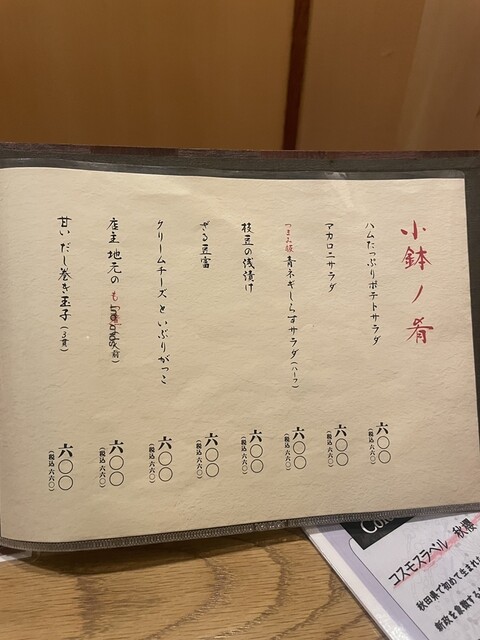 小鉢ノ肴
ハムたっぷりポテトサラダ
六〇〇
(税込 六六〇)
マカロニサラダ
六〇〇
(税込 六六〇)
つまみ版 青ネギしらすサラダ(ハーフ)
六〇〇
(税込 六六〇)
枝豆の浅漬け
六〇〇
(税込 六六〇)
ざる豆富
六〇〇
(税込 六六〇)
クリームチーズといぶりがっこ
六〇〇
(税込 六六〇)
店主 地元の も
六〇〇
(税込 六六〇)
甘いだし巻き玉子(3貫)
六〇〇
(税込 六六〇)
コスモスラベル 秋櫻
秋田県で初めて生まれた
新政を象徴する